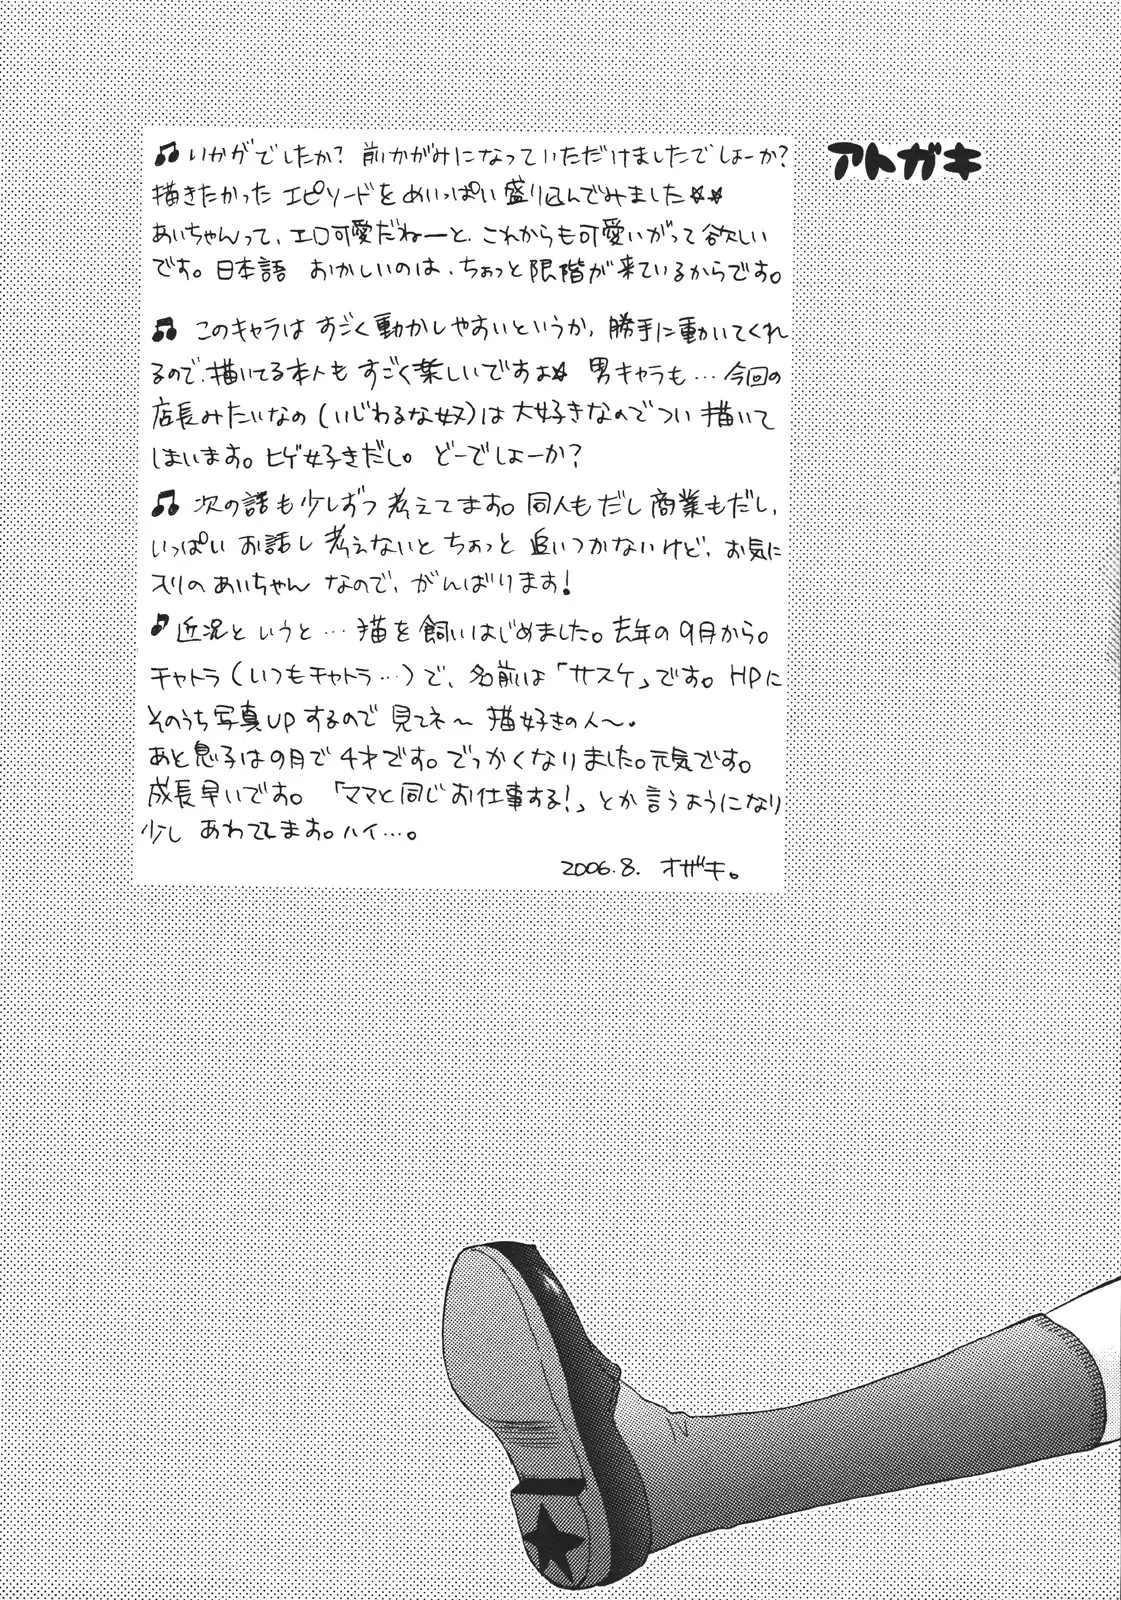 アトガキ
♫いかがでしたか? 前かがみになっていただけましたでしょーか?
描きたかった エピソードをめいっぱい盛り込んでみました☆☆
あいちゃんって、エロ可愛だねーと、これからも可愛いがって欲しい
です。日本語 おかしいのは、ちょっと限階が来ているからです。
♫ このキャラは すごく動かしやすいというか、勝手に動いてくれ
るので、描いてる本人も すごく楽しいですよ☆ 男キャラも…今回の
店長みたいなの(いじわるな奴)は大好きなのでつい描いて
しまいます。ヒゲ好きだし。 どーでしょーか?
♫ 次の話も少しずつ考えてます。同人もだし商業もだし、
いっぱいお話し考えないとちょっと追いつかないけど、お気に
入りのあいちゃん なので、がんばります!
♪近況というと…猫を飼いはじめました。去年の9月から。
チャトラ(いつもチャトラ…)で、名前は「サスケ」です。HPに
そのうち写真UPするので見てネ〜 猫好きの人〜。
あと息子は9月で4才です。でっかくなりました。元気です。
成長早いです。「ママと同じお仕事する!」とか言うようになり
少し あわててます。ハイ…。
2006.8. オザキ。